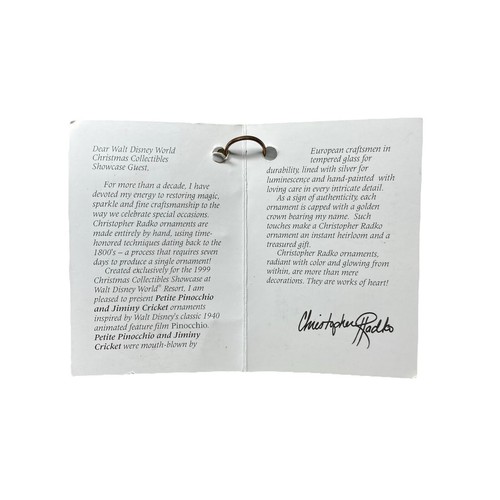 Dear Walt Disney World
Christmas Collectibles
Showcase Guest,
For more than a decade, I have
devoted my energy to restoring magic,
sparkle and fine craftsmanship to the
way we celebrate special occasions.
Christopher Radko ornaments are
made entirely by hand, using time-
honored techniques dating back to the
1800's – a process that requires seven
days to produce a single ornament!
Created exclusively for the 1999
Christmas Collectibles Showcase at
Walt Disney World® Resort, I am
pleased to present Petite Pinocchio
and Jiminy Cricket ornaments
inspired by Walt Disney's classic 1940
animated feature film Pinocchio.
Petite Pinocchio and Jiminy
Cricket were mouth-blown by
European craftsmen in
tempered glass for
durability, lined with silver for
luminescence and hand-painted with
loving care in every intricate detail.
As a sign of authenticity, each
ornament is capped with a golden
crown bearing my name. Such
touches make a Christopher Radko
ornament an instant heirloom and a
treasured gift.
Christopher Radko ornaments,
radiant with color and glowing from
within, are more than mere
decorations. They are works of heart!
Christopher Radko